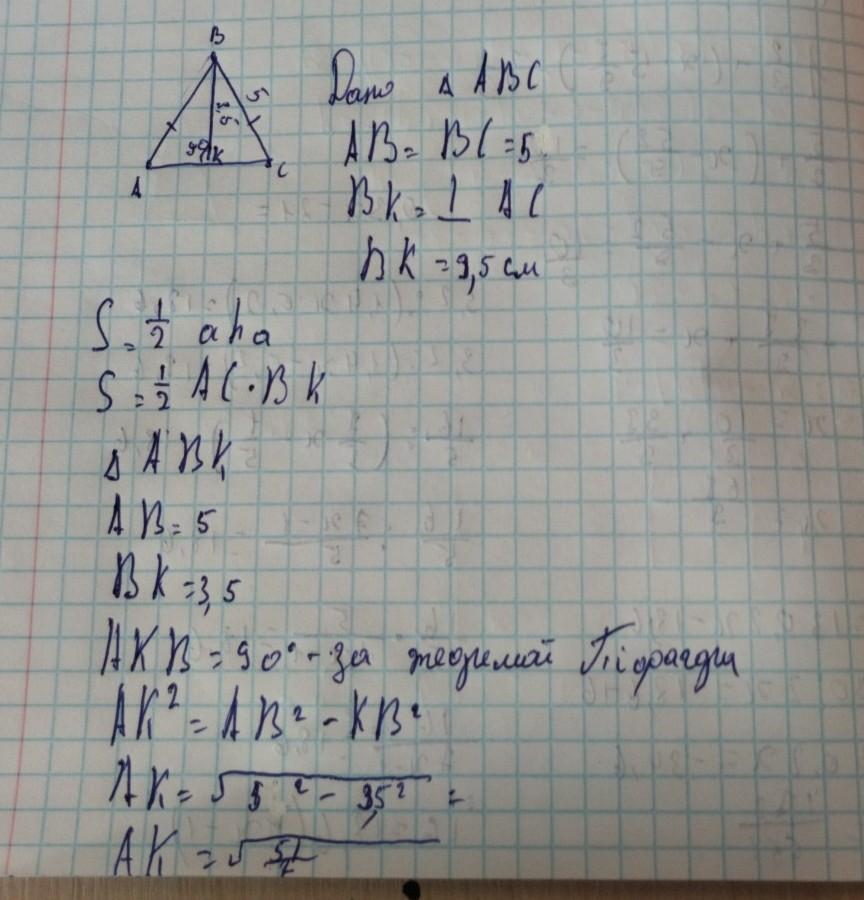 B
5
3,5
90°
K
A
C
Дано △ ABC
AB = BC = 5
BK = ⊥ AC
BK = 3,5 см
S = 1/2 aha
S = 1/2 AC · BK
△ ABK
AB = 5
BK = 3,5
AKB = 90° - за теоремой Піфагора
AK² = AB² - KB²
AK = √5² - 3,5² =
AK = √51/2